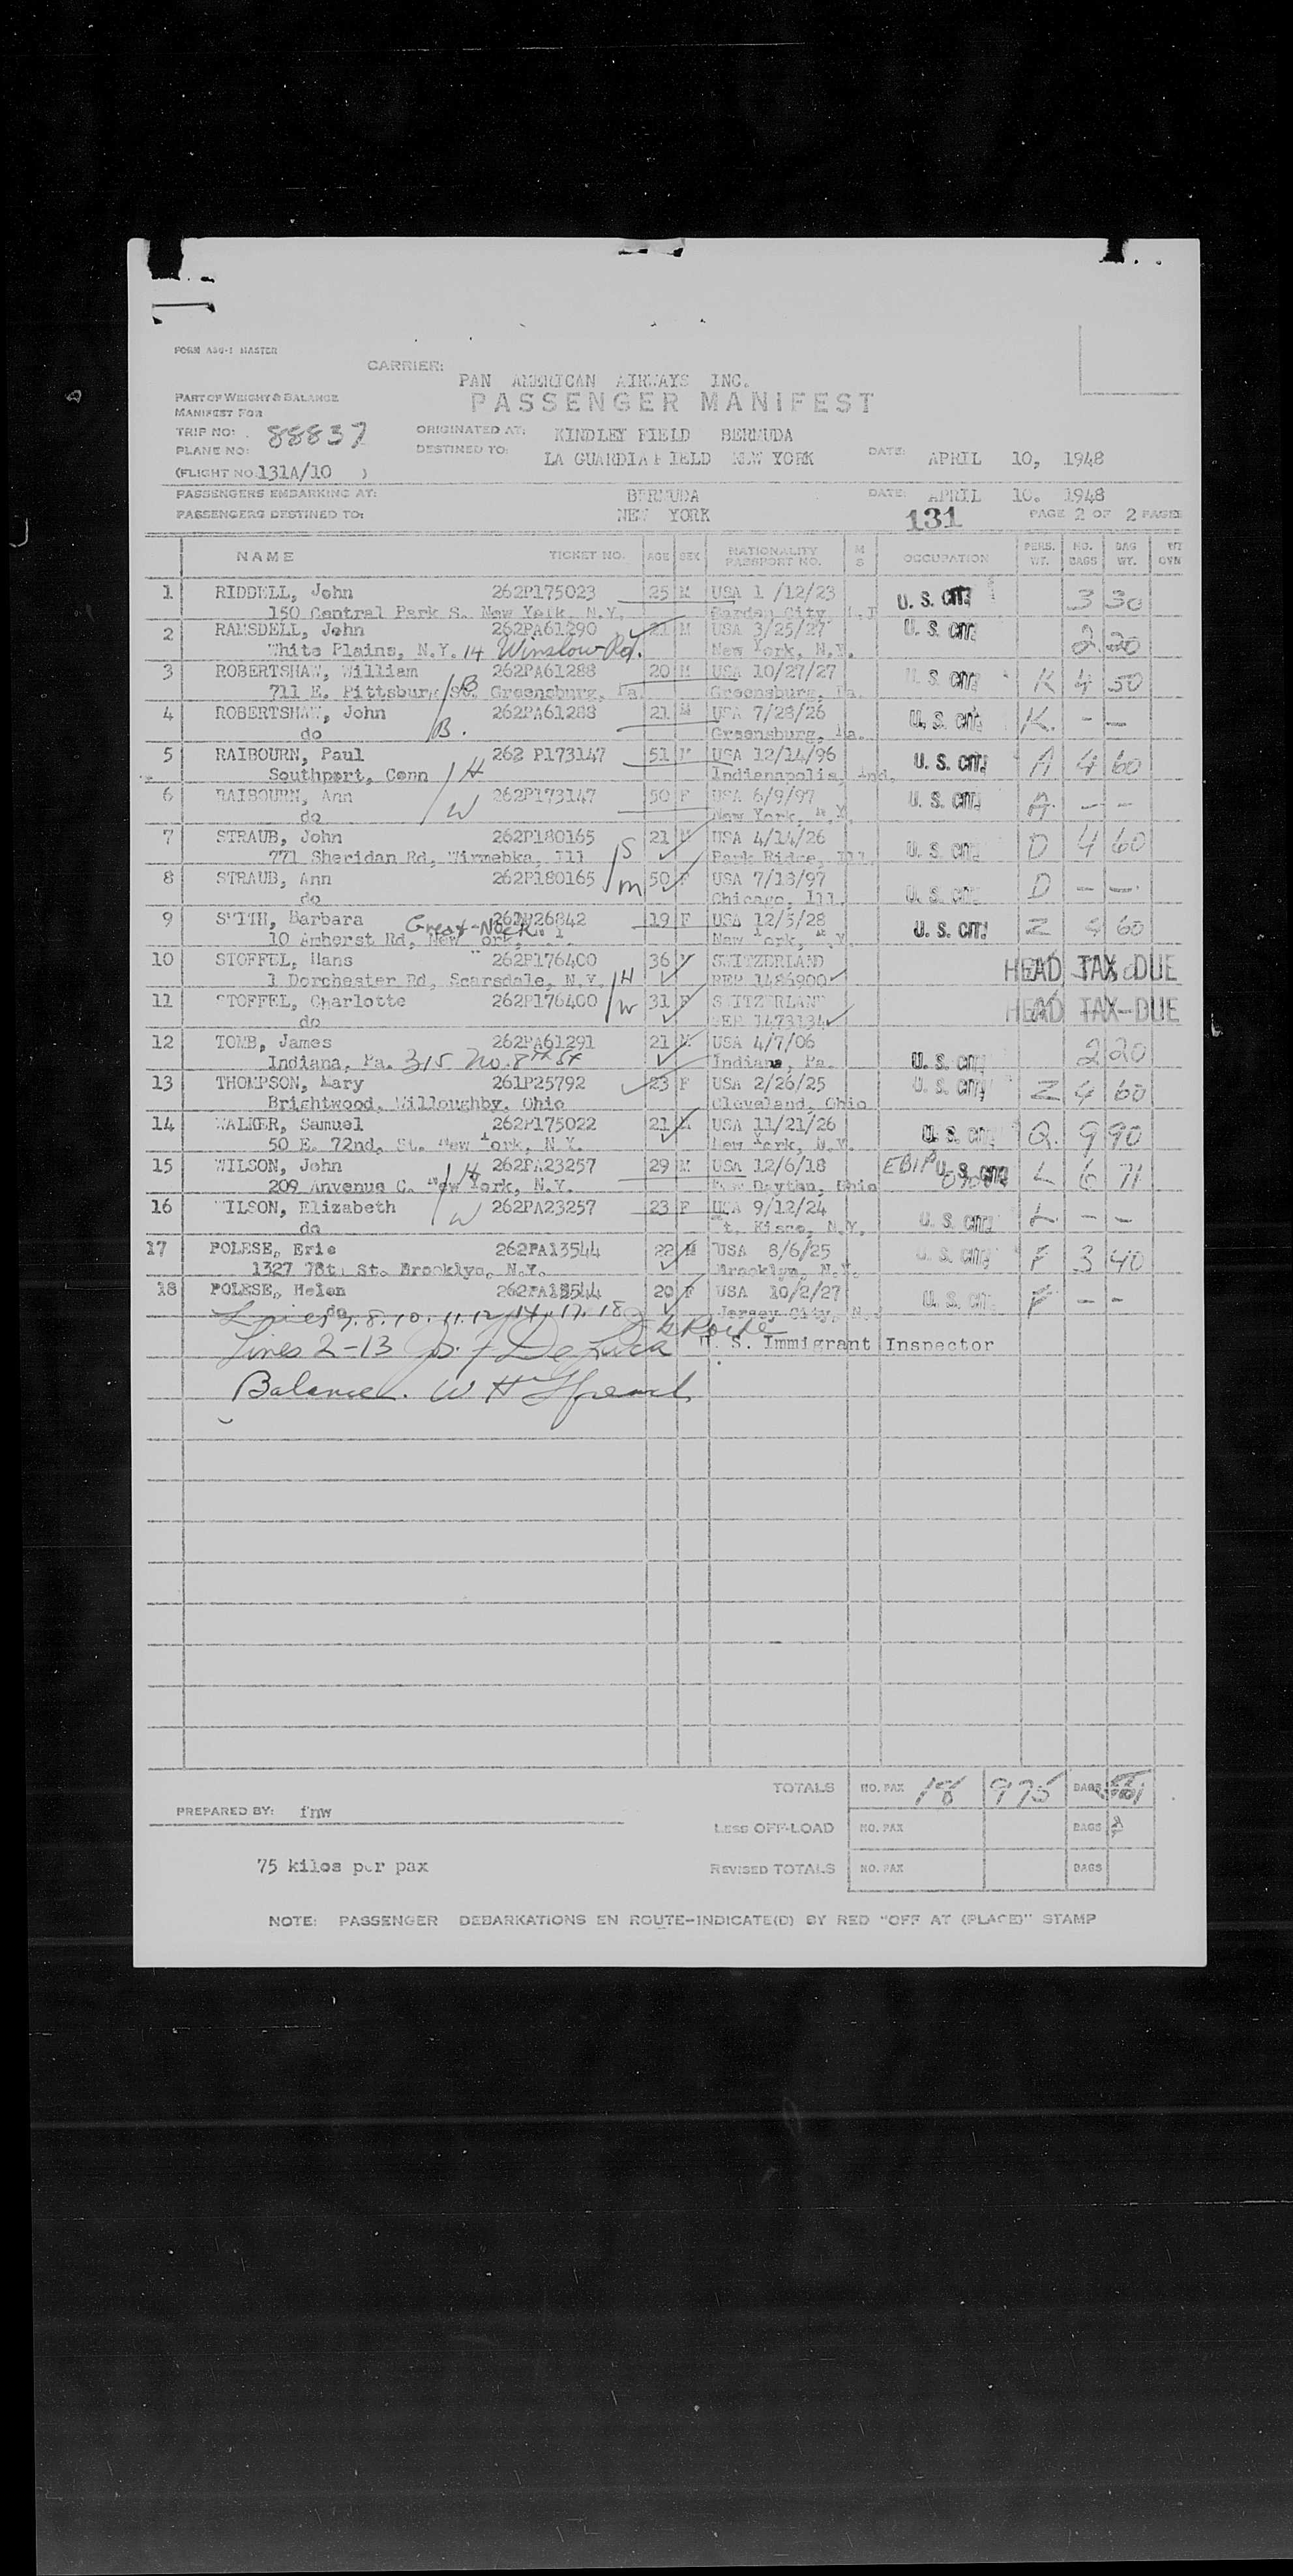 FORM ASG-1 MASTER
CARRIER:
PAN AMERICAN AIRWAYS INC.
PART OF WEIGHT & BALANCE
PASSENGER MANIFEST
MANIFEST FOR
TRIP NO: 88837 ORIGINATED AT: KINDLEY FIELD BERMUDA
PLANE NO: DESTINED TO: LA GUARDIA FIELD NEW YORK DATE: APRIL 10, 1948
(FLIGHT NO. 131A/10 )
PASSENGERS EMBARKING AT: BERMUDA DATE: APRIL 10. 1948
PASSENGERS DESTINED TO: NEW YORK 131 PAGE 2 OF 2 PAGES
NAME TICKET NO. AGE SEX NATIONALITY PASSPORT NO. M S OCCUPATION PERS. WT. NO. BAGS BAG WT.
1 RIDDELL, John 262P175023 25 M USA 1 /12/23 U. S. CIT. 3 30
150 Central Park S. New York, N.Y. City,
2 RAMSDELL, John 262PA61290 21 M USA 3/25/27 U. S. CIT. 2 20
White Plains, N.Y. 14 Winslow Rd. New York, N.Y.
3 ROBERTSHAW, William 262PA61288 20 M USA 10/27/27 U. S. CIT. K 4 50
711 E. Pittsburg St. Greensburg, Pa. /B Greensburg, Pa.
4 ROBERTSHAW, John 262PA61288 21 M USA 7/28/26 U. S. CIT. K. - -
do /B. Greensburg, Pa.
5 RAIBOURN, Paul 262 P173147 51 M USA 12/14/96 U. S. CIT. A 4 60
Southport, Conn /H Indianapolis, Ind.
6 RAIBOURN, Ann 262P173147 50 F USA 6/9/97 U. S. CIT. A. - -
do /W New York, N.Y.
7 STRAUB, John 262P180165 21 M USA 4/14/26 U. S. CIT. D 4 60
771 Sheridan Rd, Ill /S Park Ridge, Ill.
8 STRAUB, Ann 262P180165 50 F USA 7/18/97 U. S. CIT. D - -
do /m Chicago, Ill.
9 SMITH, Barbara 26842 19 F USA 12/5/28 U. S. CIT. Z 4 60
10 Amherst Rd, New York, Great-Neck New York, N.Y.
10 STOFFEL, Hans 262P176400 36 M SWITZERLAND HEAD TAX DUE
1 Dorchester Rd, Scarsdale, N.Y. /H 1486900
11 STOFFEL, Charlotte 262P176400 31 F SWITZERLAND HEAD TAX DUE
do /W 1473134
12 TOMB, James 262PA61291 21 M USA 4/7/06 U. S. CIT. 2 20
Indiana, Pa. 315 No. 8th St Indiana, Pa.
13 THOMPSON, Mary 261P25792 23 F USA 2/26/25 U. S. CIT. Z 4 60
Brightwood, Willoughby, Ohio Cleveland, Ohio
14 WALKER, Samuel 262P175022 21 M USA 11/21/26 U. S. CIT. Q. 9 90
50 E. 72nd, St. New York, N.Y. New York, N.Y.
15 WILSON, John 262PA23257 29 M USA 12/6/18 U. S. CIT. L 6 71
209 Anvenue C. New York, N.Y. /H Dayton, Ohio
16 WILSON, Elizabeth 262PA23257 23 F USA 9/12/24 U. S. CIT. L - -
do /W Mt. Kisco, N.Y.
17 POLESE, Eric 262PA13544 22 M USA 8/6/25 U. S. CIT. F 3 40
1327 78th St. Brooklyn, N.Y. Brooklyn, N.Y.
18 POLESE, Helen 262PA13544 20 F USA 10/2/27 U. S. CIT. F - -
do Jersey City,
Lines 7. 8. 10. 11. 12. 14. 17. 18
Lines 2-13 U. S. Immigrant Inspector
Balance. W H
TOTALS NO. PAX 18 975 BAGS
PREPARED BY: fnw
LESS OFF-LOAD NO. PAX BAGS
75 kilos per pax REVISED TOTALS NO. PAX BAGS
NOTE: PASSENGER DEBARKATIONS EN ROUTE-INDICATE(D) BY RED "OFF AT (PLACE)" STAMP